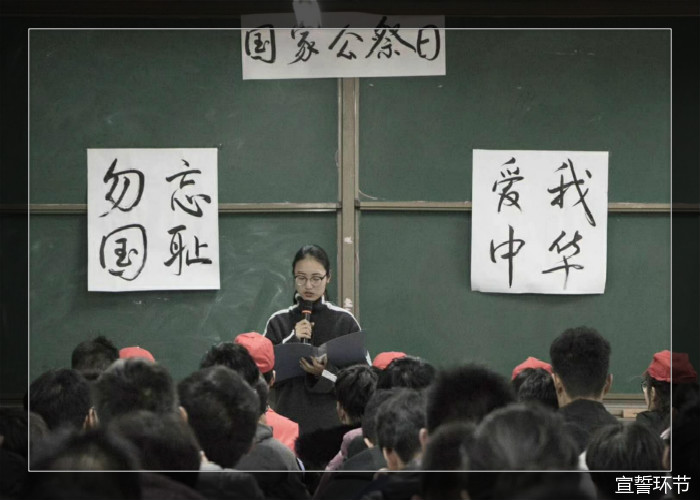 国家公祭日
勿忘
国耻
爱我
中华
宣誓环节